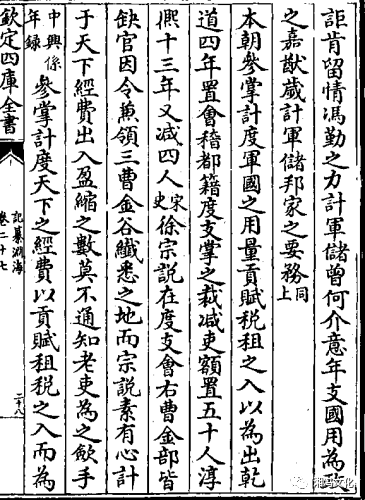 詎肯留情馮勤之力計軍儲曾何介意年支國用為政
之嘉猷歲計軍儲邦家之要務同上
本朝參掌計度軍國之用量貢賦稅租之入以為出乾
道四年置會稽都籍度支掌之裁减吏額置五十人淳
熈十三年又减四人宋史徐宗説在度支會右曹金部皆
缺官因令兼領三曹金谷纎悉之地而宗説素有心計
于天下經費出入盈縮之數莫不通知老吏為之斂手
中興係年録參掌計度天下之經費以貢賦租税之入而為
欽定四庫全書
記纂淵海
卷二十七
二十八
湘韵文化